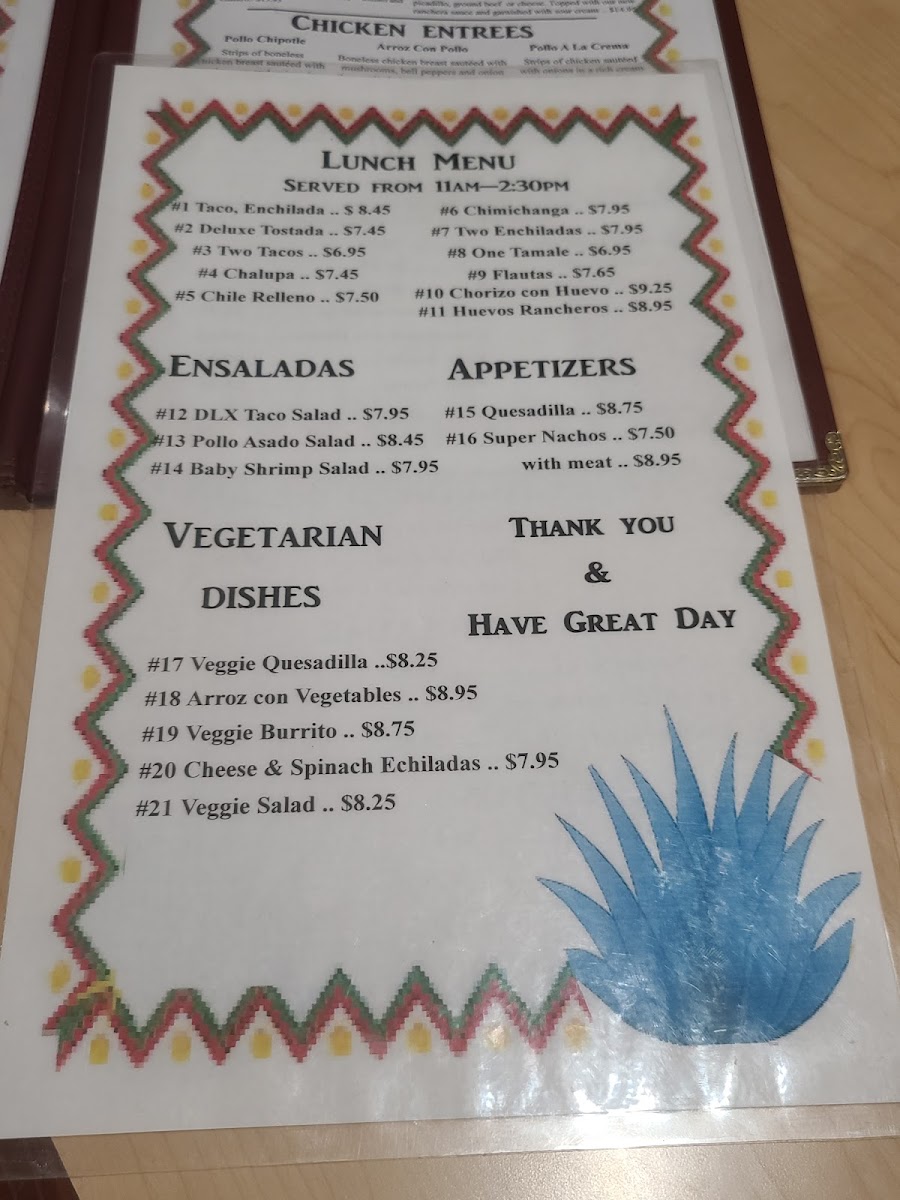 picadillo, ground beef or cheese. Topped with our new
ranchera sauce and garnished with sour cream
CHICKEN ENTREES
Pollo Chipotle
Arroz Con Pollo
Pollo A La Crema
Strips of boneless
chicken breast sautéed with
Boneless chicken breast sautéed with
mushrooms, bell peppers and onion
Strips of chicken sautéed
with onions in a rich cream
LUNCH MENU
SERVED FROM 11AM—2:30PM
#1 Taco, Enchilada .. $ 8.45
#2 Deluxe Tostada .. $7.45
#3 Two Tacos .. $6.95
#4 Chalupa .. $7.45
#5 Chile Relleno .. $7.50
#6 Chimichanga .. $7.95
#7 Two Enchiladas .. $7.95
#8 One Tamale .. $6.95
#9 Flautas .. $7.65
#10 Chorizo con Huevo .. $9.25
#11 Huevos Rancheros .. $8.95
ENSALADAS
#12 DLX Taco Salad .. $7.95
#13 Pollo Asado Salad .. $8.45
#14 Baby Shrimp Salad .. $7.95
APPETIZERS
#15 Quesadilla .. $8.75
#16 Super Nachos .. $7.50
with meat .. $8.95
VEGETARIAN
DISHES
#17 Veggie Quesadilla ..$8.25
#18 Arroz con Vegetables .. $8.95
#19 Veggie Burrito .. $8.75
#20 Cheese & Spinach Echiladas .. $7.95
#21 Veggie Salad .. $8.25
THANK YOU
&
HAVE GREAT DAY